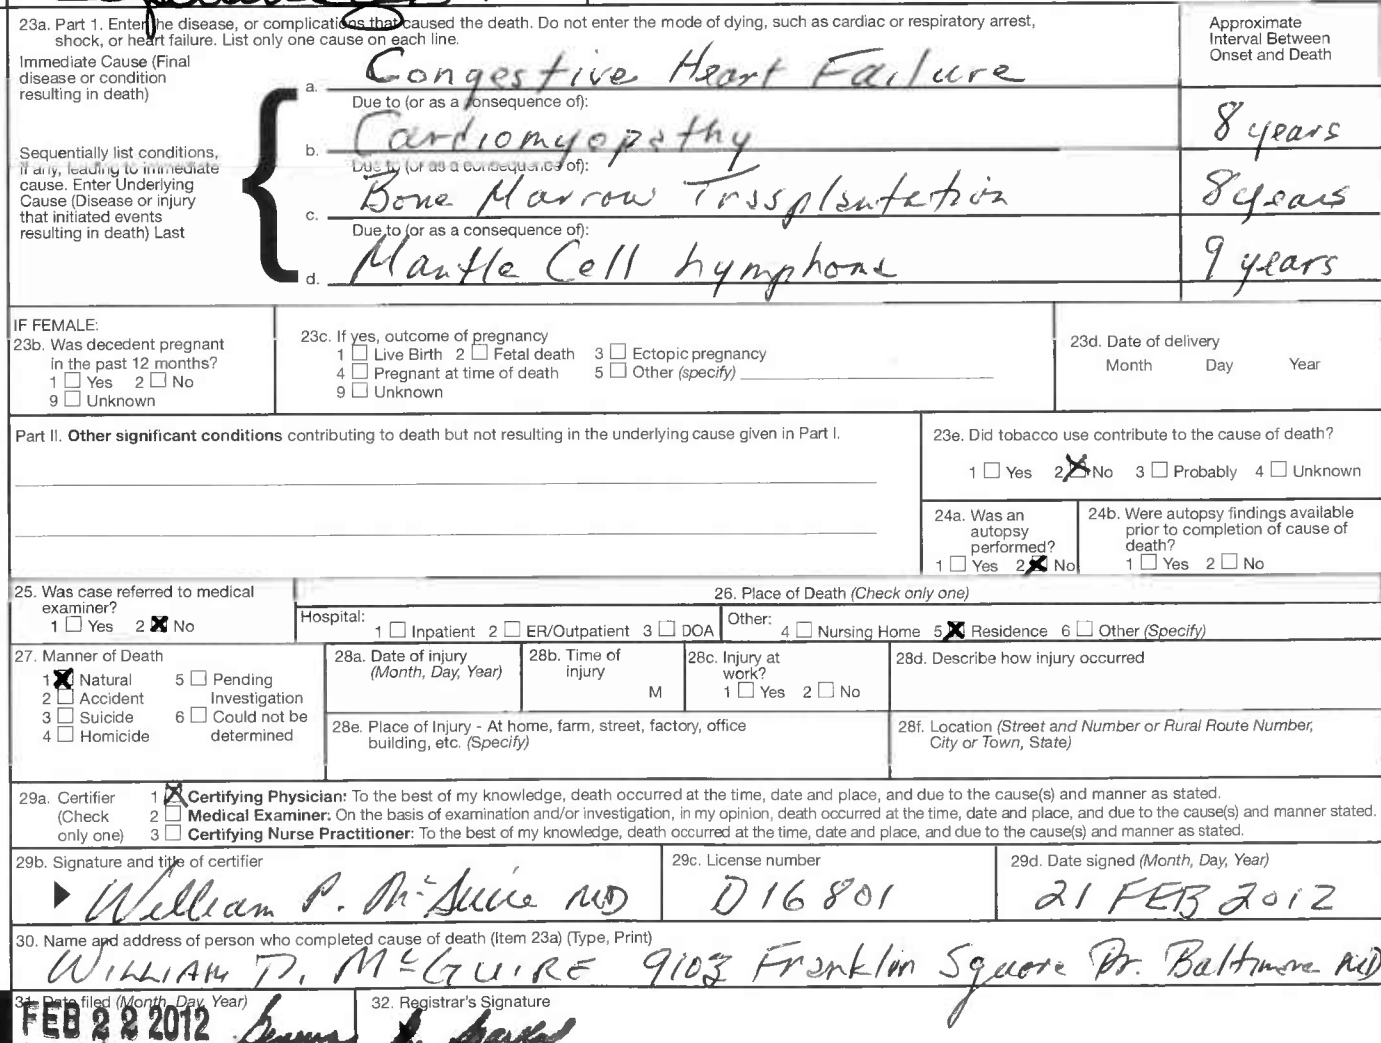 23a. Part 1. Enter the disease, or complications that caused the death. Do not enter the mode of dying, such as cardiac or respiratory arrest,
shock, or heart failure. List only one cause on each line.
Approximate
Interval Between
Onset and Death
Immediate Cause (Final
disease or condition
resulting in death)
a. Congestive Heart Failure
Due to (or as a consequence of):
b. Cardiomyopathy 8 years
Sequentially list conditions,
if any, leading to immediate
cause. Enter Underlying
Cause (Disease or injury
that initiated events
resulting in death) Last
Due to (or as a consequence of):
c. Bone Marrow Trssplantation 8 years
Due to (or as a consequence of):
d. Mantle Cell Lymphoma 9 years
IF FEMALE:
23b. Was decedent pregnant
in the past 12 months?
1 ☐ Yes 2 ☐ No
9 ☐ Unknown
23c. If yes, outcome of pregnancy
1 ☐ Live Birth 2 ☐ Fetal death 3 ☐ Ectopic pregnancy
4 ☐ Pregnant at time of death 5 ☐ Other (specify)
9 ☐ Unknown
23d. Date of delivery
Month Day Year
Part II. Other significant conditions contributing to death but not resulting in the underlying cause given in Part I.
23e. Did tobacco use contribute to the cause of death?
1 ☐ Yes 2 ☒ No 3 ☐ Probably 4 ☐ Unknown
24a. Was an
autopsy
performed?
1 ☐ Yes 2 ☒ No
24b. Were autopsy findings available
prior to completion of cause of
death?
1 ☐ Yes 2 ☐ No
25. Was case referred to medical
examiner?
1 ☐ Yes 2 ☒ No
26. Place of Death (Check only one)
Hospital: 1 ☐ Inpatient 2 ☐ ER/Outpatient 3 ☐ DOA Other: 4 ☐ Nursing Home 5 ☒ Residence 6 ☐ Other (Specify)
27. Manner of Death
1 ☒ Natural 5 ☐ Pending
2 ☐ Accident Investigation
3 ☐ Suicide 6 ☐ Could not be
4 ☐ Homicide determined
28a. Date of injury
(Month, Day, Year)
28b. Time of
injury
M
28c. Injury at
work?
1 ☐ Yes 2 ☐ No
28d. Describe how injury occurred
28e. Place of Injury - At home, farm, street, factory, office
building, etc. (Specify)
28f. Location (Street and Number or Rural Route Number,
City or Town, State)
29a. Certifier
(Check
only one)
1 ☒ Certifying Physician: To the best of my knowledge, death occurred at the time, date and place, and due to the cause(s) and manner as stated.
2 ☐ Medical Examiner: On the basis of examination and/or investigation, in my opinion, death occurred at the time, date and place, and due to the cause(s) and manner stated.
3 ☐ Certifying Nurse Practitioner: To the best of my knowledge, death occurred at the time, date and place, and due to the cause(s) and manner as stated.
29b. Signature and title of certifier
William P. McGuire MD
29c. License number
D16801
29d. Date signed (Month, Day, Year)
21 FEB 2012
30. Name and address of person who completed cause of death (Item 23a) (Type, Print)
WILLIAM P. McGUIRE 9103 Franklin Square Dr. Baltimore MD
31. Date filed (Month, Day, Year)
FEB 22 2012
32. Registrar's Signature